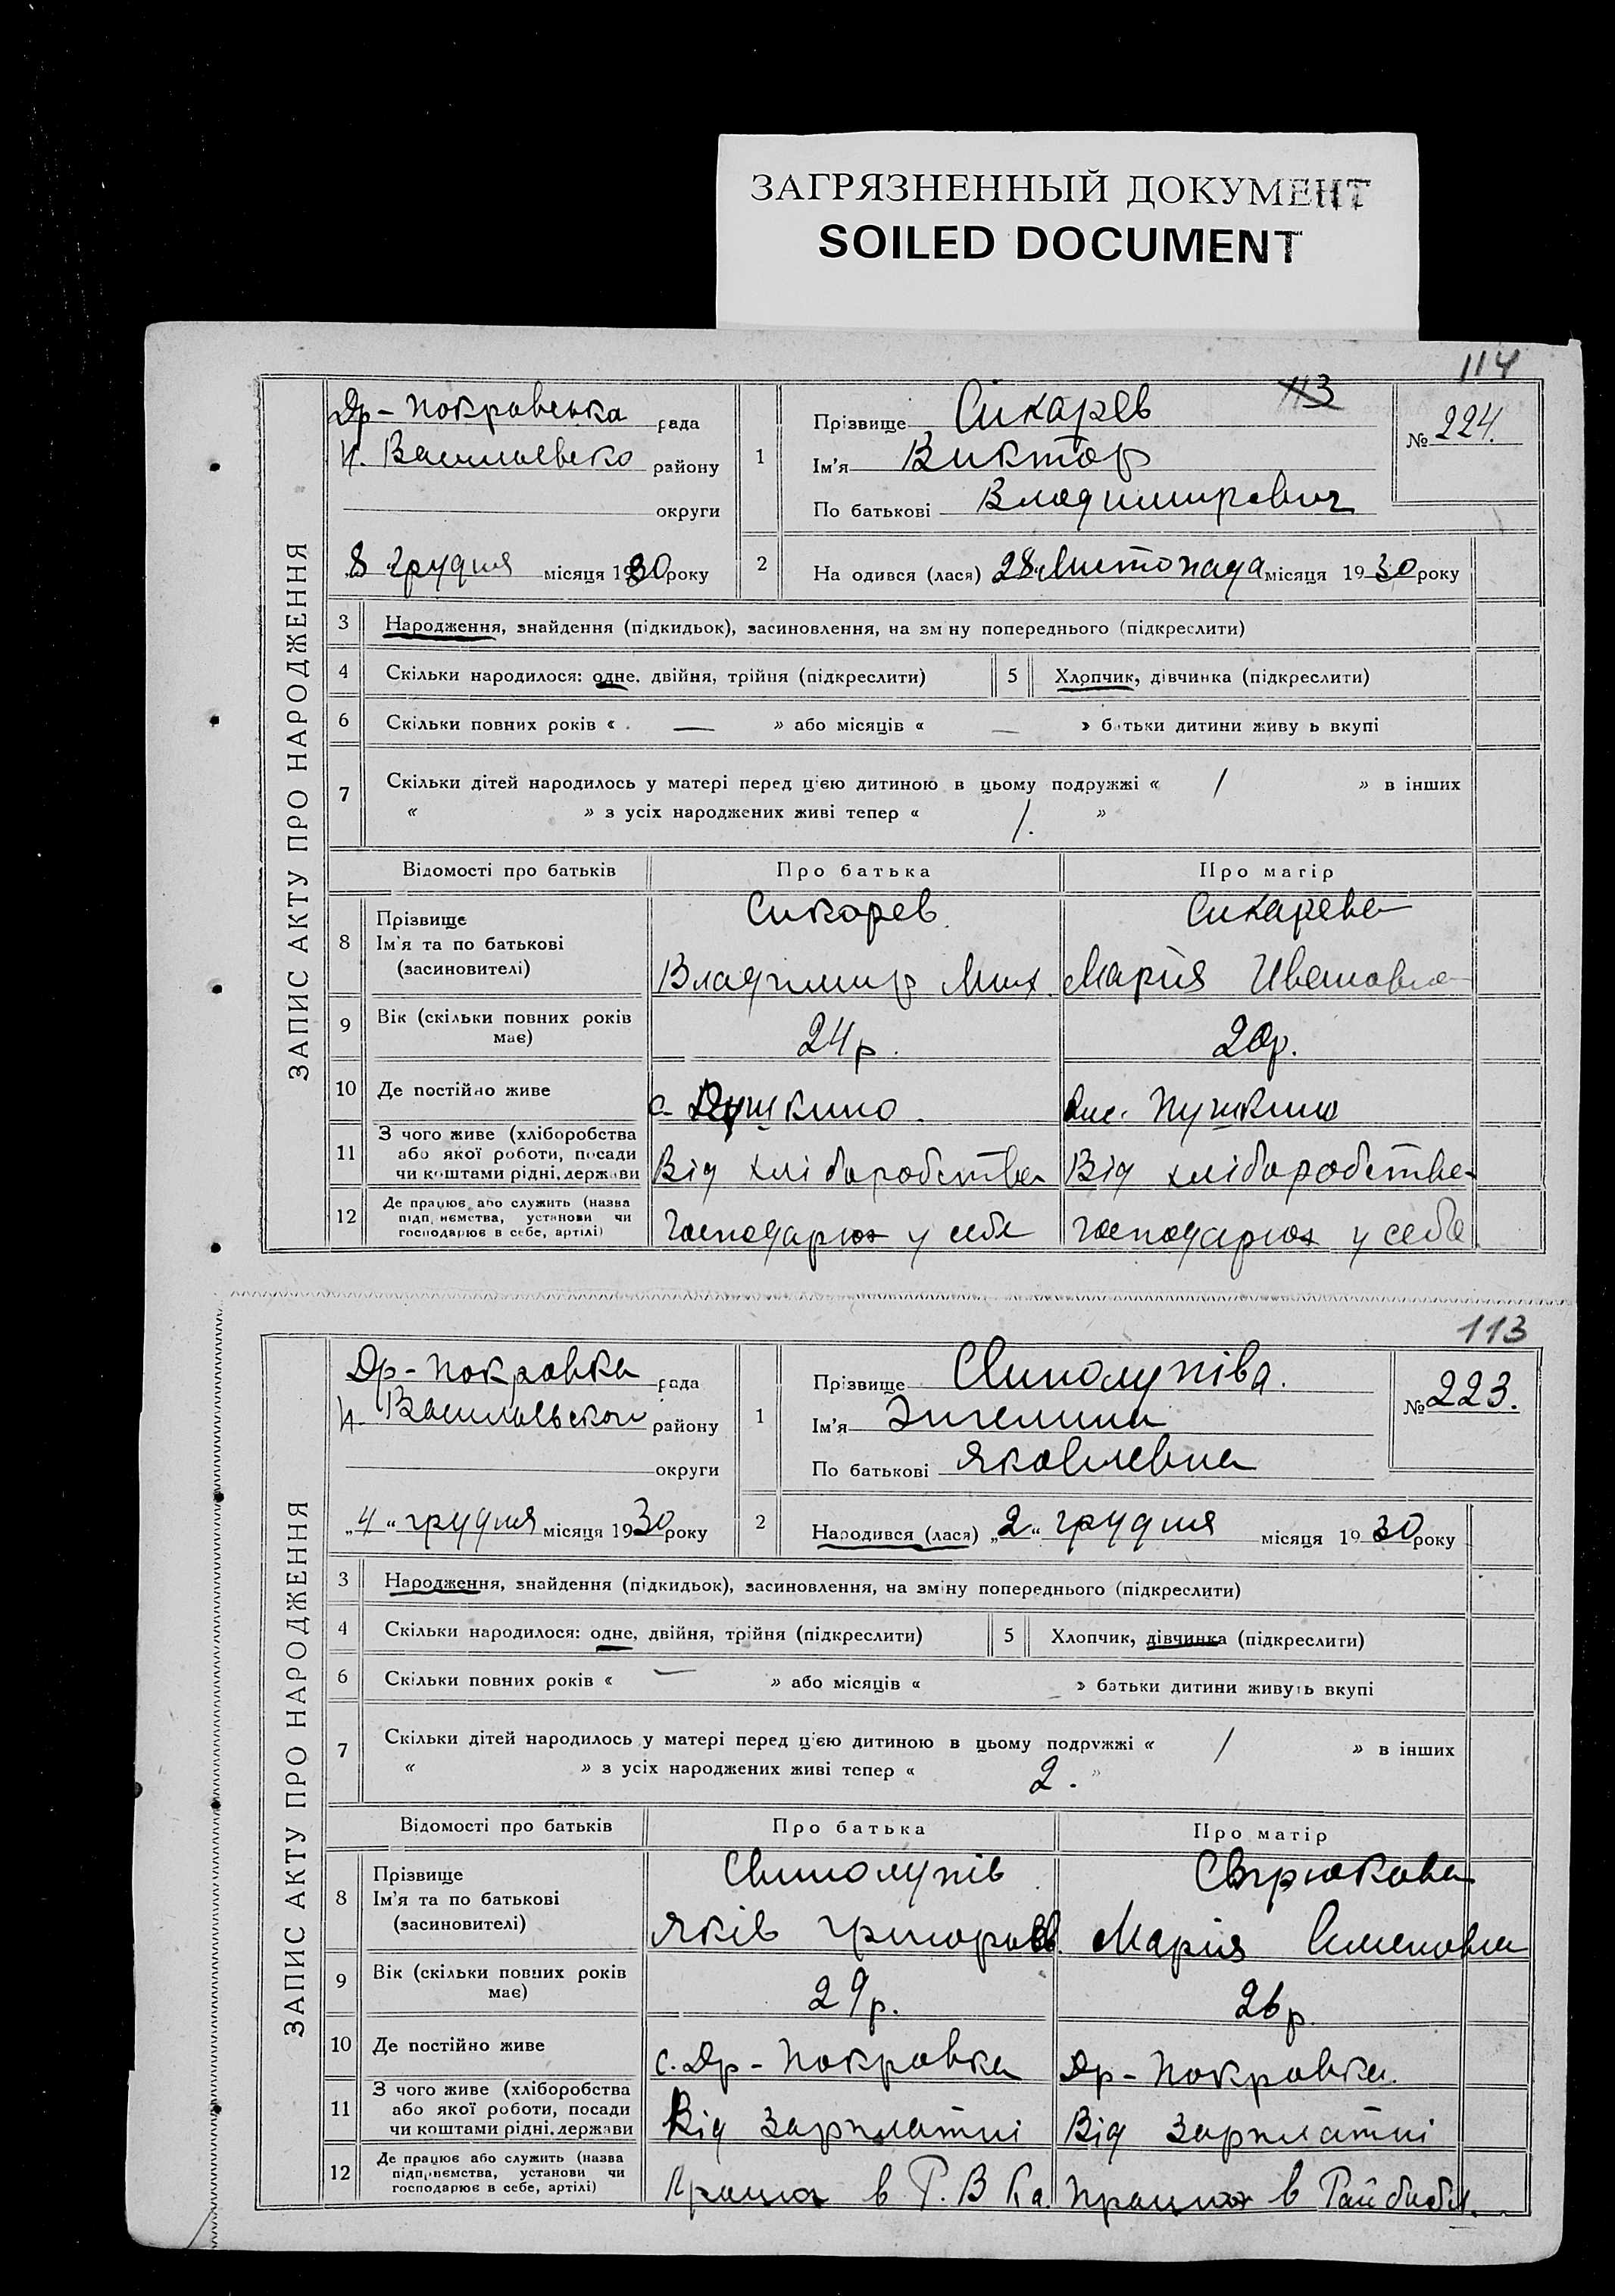 ЗАГРЯЗНЕННЫЙ ДОКУМЕНТ
SOILED DOCUMENT
114
ЗАПИС АКТУ ПРО НАРОДЖЕННЯ
Др-Покровська рада
Н. Василевско району
округи
8 грудня місяця 1930 року
1
Прізвище Сикарев
113
№ 224.
Ім'я Виктор
По батькові Владимирович
2
На одився (лася) 28 Листопада місяця 1930 року
3 Народження, знайдення (підкидьок), засиновлення, на зм ну попереднього (підкреслити)
4 Скільки народилося: одне. двійня, трійня (підкреслити)
5 Хлопчик, дівчинка (підкреслити)
6 Скільки повних років « — » або місяців « — » батьки дитини живу ь вкупі
7 Скільки дітей народилось у матері перед цією дитиною в цьому подружжі « 1 » в інших
« » з усіх народжених живі тепер « 1. »
Відомості про батьків
Про батька
Про матір
8 Прізвище
Ім'я та по батькові
(засиновителі)
Сикарев
Владимир Мих.
Сикарева
Мария Ивановна
9 Вік (скільки повних років має)
24 р.
20 р.
10 Де постійно живе
с. Пушкино
Пушкино
11 З чого живе (хліборобства
або якої роботи, посади
чи коштами рідні, держави
Від хліборобства
Від хліборобства
12 Де працює або служить (назва
підп иємства, установи чи
господарює в себе, артілі)
господарює у себе
господарює у себе
113
ЗАПИС АКТУ ПРО НАРОДЖЕННЯ
Др-Покровка рада
Н. Василевского району
округи
„4" грудня місяця 1930 року
1
Прізвище Свинолупіва.
№ 223.
Ім'я Энгелина
По батькові Яковлевна
2
Народився (лася) „2" грудня місяця 1930 року
3 Народження, знайдення (підкидьок), засиновлення, на зміну попереднього (підкреслити)
4 Скільки народилося: одне, двійня, трійня (підкреслити)
5 Хлопчик, дівчинка (підкреслити)
6 Скільки повних років « — » або місяців « — » батьки дитини живуть вкупі
7 Скільки дітей народилось у матері перед цією дитиною в цьому подружжі « 1 » в інших
« » з усіх народжених живі тепер « 2. »
Відомості про батьків
Про батька
Про матір
8 Прізвище
Ім'я та по батькові
(засиновителі)
Свинолупів
Яків Григоров.
Мария Семеновна
9 Вік (скільки повних років має)
29 р.
26 р.
10 Де постійно живе
с. Др-Покровка
Др-Покровка.
11 З чого живе (хліборобства
або якої роботи, посади
чи коштами рідні, держави
Від зарплатні
Від зарплатні
12 Де працює або служить (назва
підприємства, установи чи
господарює в себе, артілі)
в Р.В.Ка.
Працює в